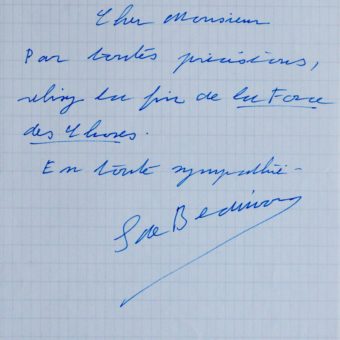 Cher Monsieur
Par toutes précisions,
relisez la fin de la Force
des Choses.
En toute sympathie -
S de Beauvoir